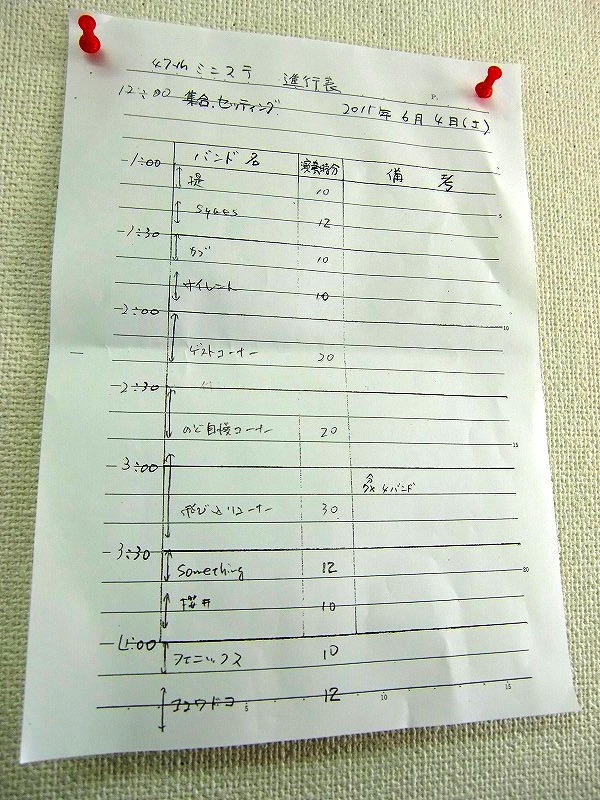 47th ミニステ 進行表 P.
12:00 集合、セッティング 2011年 6月 4日(土)
バンド名 演奏時分 備考
1:00 堤 10
5
12
1:30
カブ 10
サイレント 10
2:00 10
ゲストコーナー 20
2:30
のど自慢コーナー 20
15
3:00
4バンド
飛び入りコーナー 30
3:30
Something 12
20
桜井 10
4:00
フェニックス 10
12
5 10 15